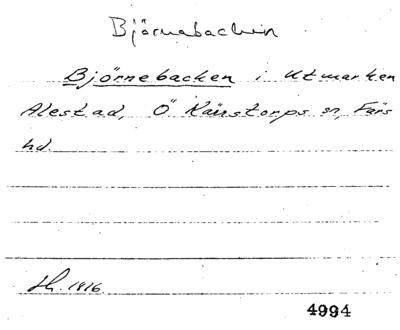 Björnabacken
Björnebacken i Utmarken
Alestad, Ö Kärrstorps sn, Färs
hd.
Sk. 1916.
4994